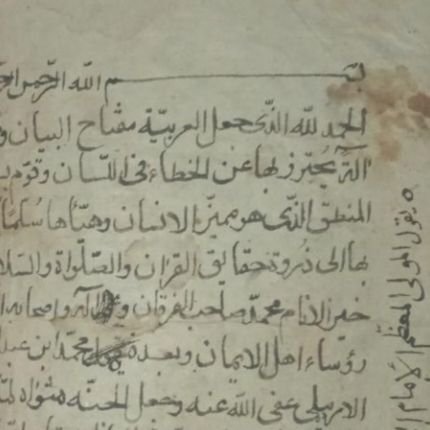 بسم الله الرحمن الر
الحمد لله الذى جعل العربيّة مفتاح البيان و
آلة يُحترز بها عن الخطاء فى اللسان وقوّم
المنطق الذى هو مميّز الانسان وهيّأها سُلّمًا
بها الى ذُروة حقايق القران والصّلواة والسّلا
خير الانام محمد صاحب الفرقان و آله واصحابه
رؤساء اهل الايمان وبعد محمد ابن عبد
الاردبيلى عفى الله عنه وجعل الجنّه مثواه
يقول المولى المعظّم الامام